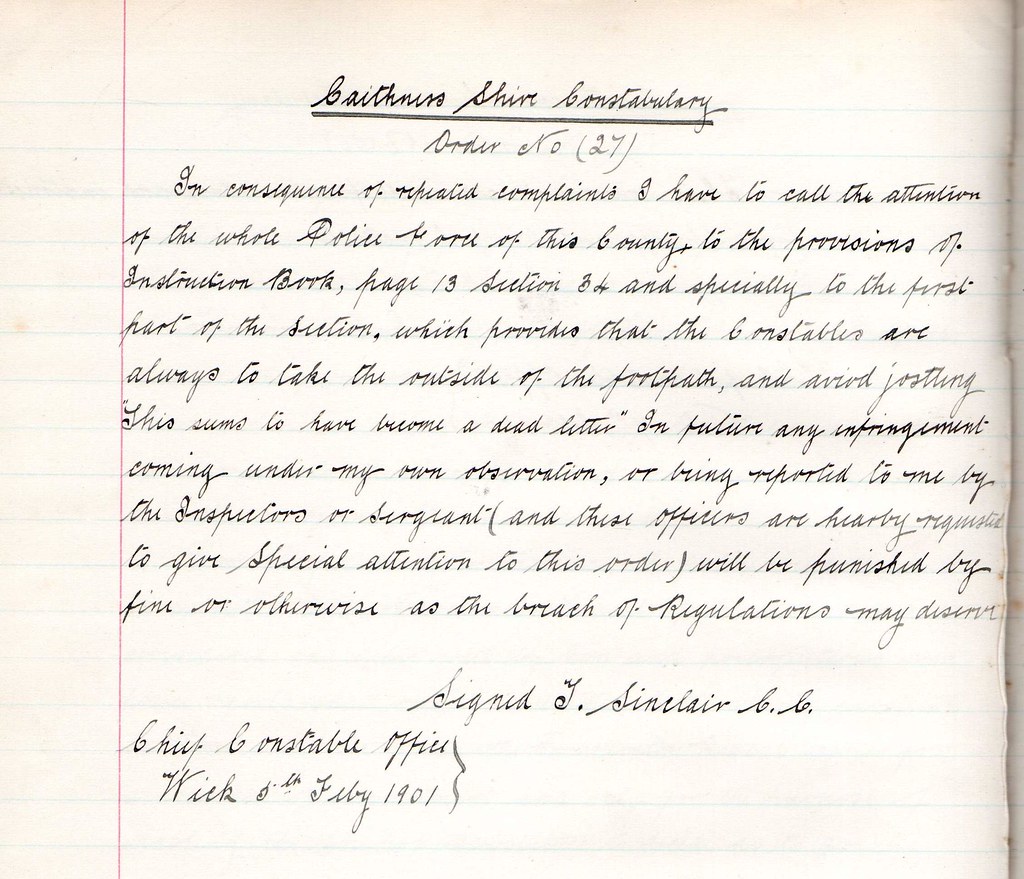 Caithness Shire Constabulary
Order No (27)
In consequence of repeated complaints I have to call the attention
of the whole Police Force of this County, to the provisions of
Instruction Book, page 13 Section 34 and specially to the first
part of the Section, which provides that the Constables are
always to take the outside of the footpath, and aviod jostling
"This seems to have become a dead letter" In future any infringement
coming under my own observation, or being reported to me by
the Inspectors or Sergeant (and these officers are hearby requested
to give Special attention to this order) will be punished by
fine or otherwise as the breach of Regulations may deserve
Signed J. Sinclair C.C.
Chief Constable Office
Wick 5th Feby 1901